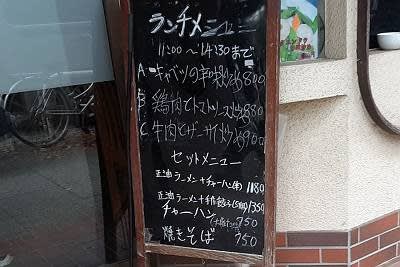 ランチメニュー
11:00～14:30まで
A キャベツの辛味炒め 800
B 鶏肉とトマトソース炒め 880
C 牛肉とザーサイ炒め 900
セットメニュー
正油ラーメン+チャーハン(半) 1180
正油ラーメン+手作餃子(5個) 1350
チャーハン
750
焼きそば 750